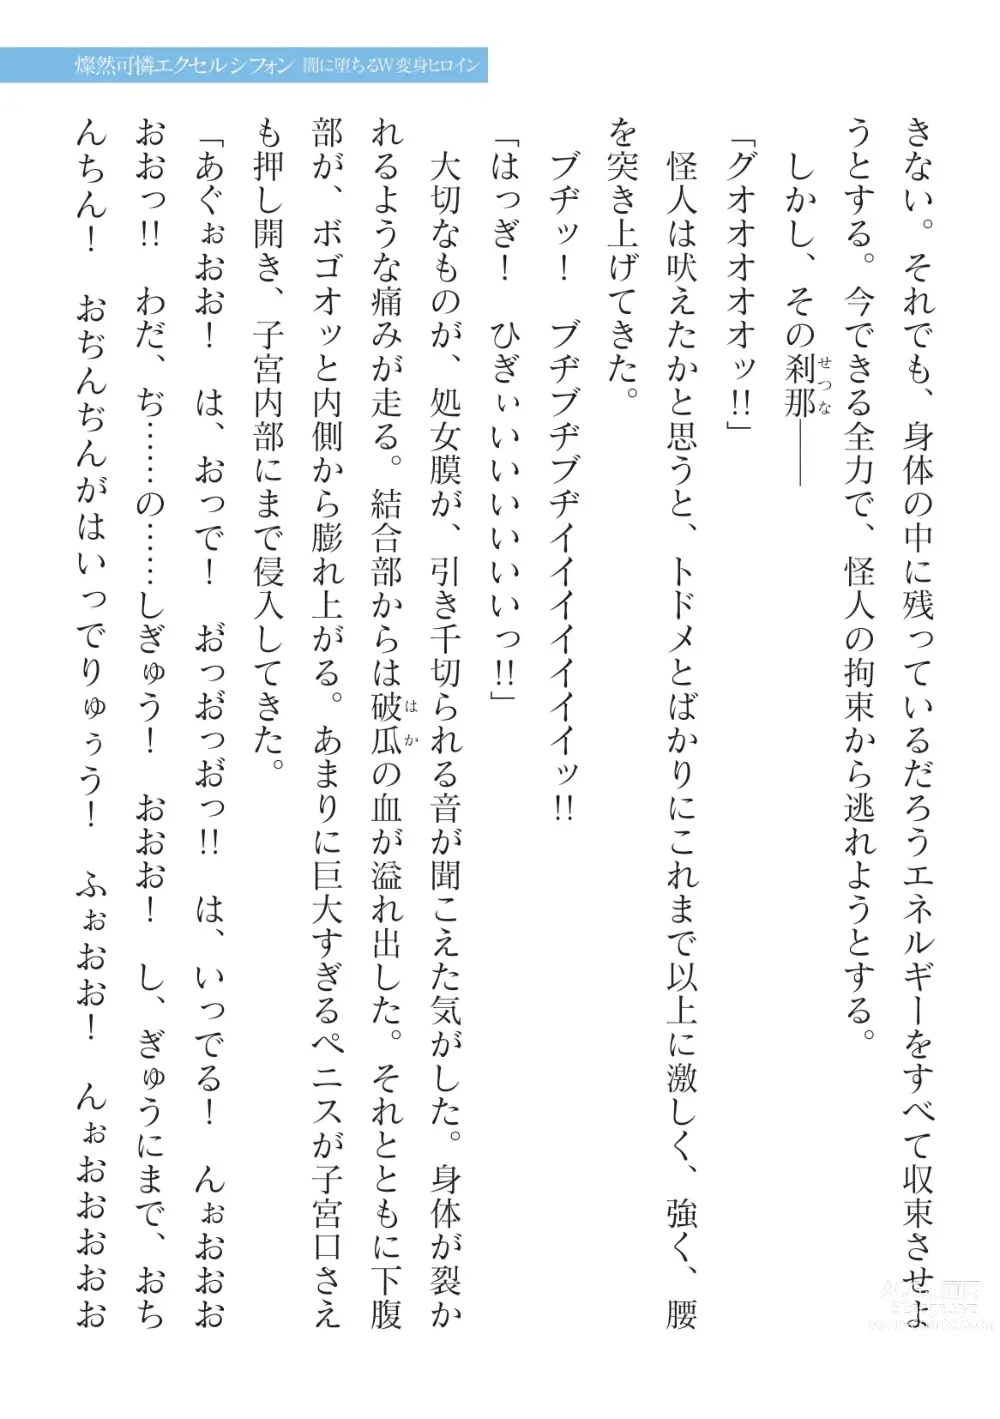 燦然可憐エクセルシフォン 闇に堕ちるW変身ヒロイン
きない。それでも、身体の中に残っているだろうエネルギーをすべて収束させよ
うとする。今できる全力で、怪人の拘束から逃れようとする。
しかし、その刹那――
せつな
「グオオオオオッ!!」
怪人は吠えたかと思うと、トドメとばかりにこれまで以上に激しく、強く、腰
を突き上げてきた。
ブヂッ! ブヂブヂブヂイイイイイイイッ!!
「はっぎ! ひぎぃいいいいいいっ!!」
大切なものが、処女膜が、引き千切られる音が聞こえた気がした。身体が裂か
れるような痛みが走る。結合部からは破瓜の血が溢れ出した。それとともに下腹
はか
部が、ボゴオッと内側から膨れ上がる。あまりに巨大すぎるペニスが子宮口さえ
も押し開き、子宮内部にまで侵入してきた。
「あぐぉおお! は、おっで! お゛っお゛っお゛っ!! は、いっでる! んぉおおお
おおっ!! わだ、ぢ……の……しぎゅう! おおお! し、ぎゅうにまで、おち
んちん! おぢんぢんがはいっでりゅぅう! ふぉおお! んぉおおおおお